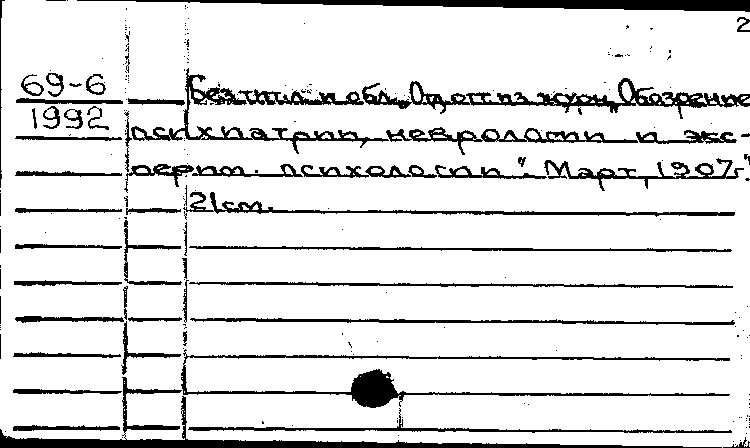 2
69-6 Без тит. л. и обл. „Отд. отт. из журн. „Обозрение
1992 психиатрии, неврологии и экс-
перим. психологии“. Март, 1907г.“
21см.